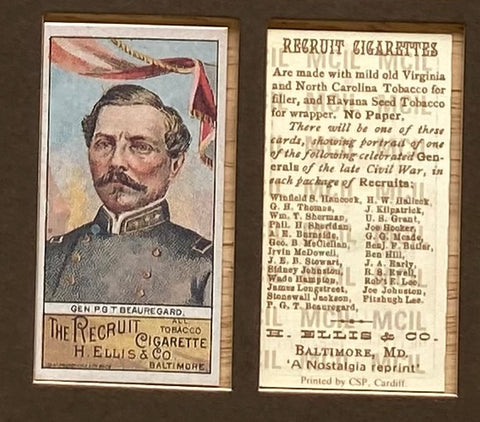 GEN P.G T BEAUREGARD.
THE RECRUIT
ALL
TOBACCO
CIGARETTE
H. ELLIS & CO.
BALTIMORE.
RECRUIT CIGARETTES
Are made with mild old Virginia
and North Carolina Tobacco for
filler, and Havana Seed Tobacco
for wrapper. No Paper.
There will be one of these
cards, showing portrait of one
of the following celebrated Gen-
erals of the late Civil War, in
each package of Recruits:
Winfield S. Hancock, H. W. Halleck,
G. H. Thomas, J. Kilpatrick,
Wm. T. Sherman, U. S. Grant,
Phil. H. Sheridan, Joe Hooker,
A. E. Burnside, G. G. Meade,
Geo. B. McClellan, Benj. F. Butler,
Irvin McDowell, Ben Hill,
J. E. B. Stewart, J. A. Early,
Sidney Johnston, R. S. Ewell,
Wade Hampton, Rob't E. Lee,
James Longstreet, Joe Johnston,
Stonewall Jackson, Fitzhugh Lee.
P. G. T. Beauregard,
H. ELLIS & CO.
BALTIMORE, MD.
'A Nostalgia reprint'
Printed by CSP, Cardiff.
MCIL MCIL